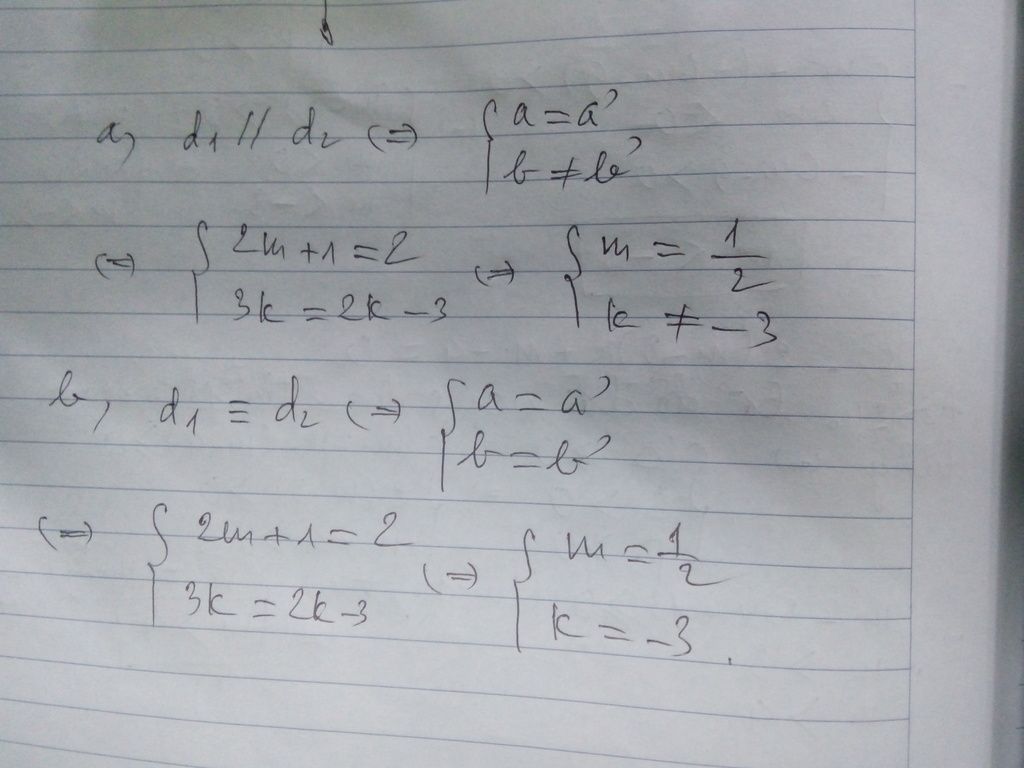 a, d₁ // d₂ (=) { a = a’
b ≠ b’
(=) { 2m + 1 = 2
3k = 2k - 3 (=) { m = 1/2
k ≠ -3
b, d₁ ≡ d₂ (=) { a = a’
b = b’
(=) { 2m + 1 = 2
3k = 2k - 3 (=) { m = 1/2
k = -3.